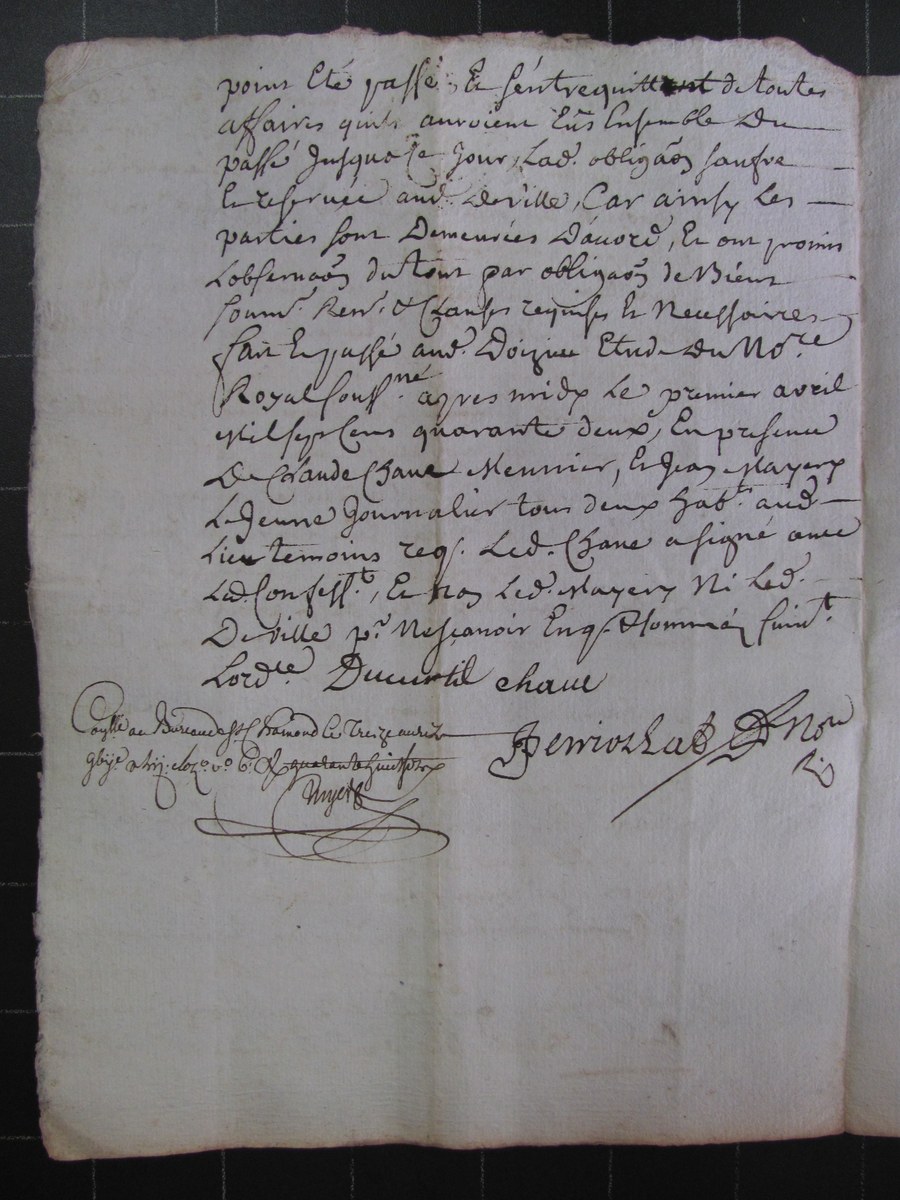 point Eté passé, Et s'entrequittent de toutes
affaires quils auroient Eus Ensemble Du
passé Jusqua Ce Jour, Lad. obligãon saufve
Et reservée aud. Deville, Car ainsy Les
parties sont Demeurées D'acord, Et ont promis
Lobservãon du tout par obligãon de Biens
soumns. Renns. & Clauses requises Et Necessaires
fait Et passé aud. Doizieu Etude Du Nore
Royal soussné. apres midy Le premier avril
Mil sept Cens quarante deux, En presence
De Claude Chave Meunier, Et Jean Mayery
Le Jeune Journalier tous deux habts. aud.
Lieu temoins req. Led. Chave a signé avec
Lad. Confesst., Et non Led. Mayery Ni Led.
Deville pr. Ne scavoir Enq. & sommés suivt.
Lordce Ducurtil chave
au Bureau de St Chamond Le Treize avril
quarante huit
Nore